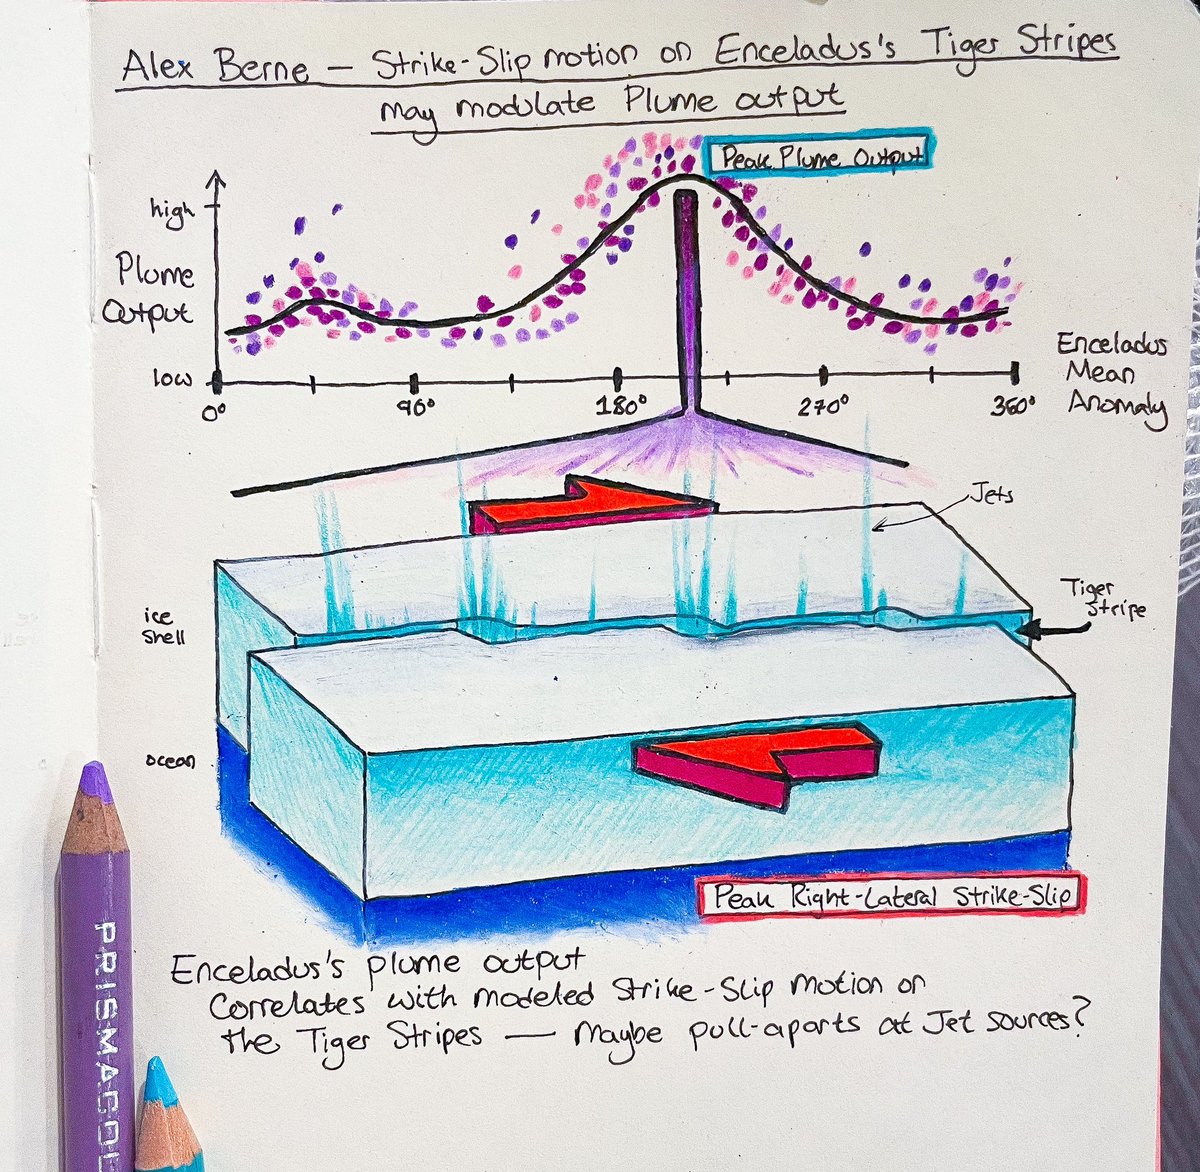 Alex Berne — Strike-Slip motion on Enceladus's Tiger Stripes
may modulate Plume output
Peak Plume Output
high
Plume
Output
low
0°
90°
180°
270°
360°
Enceladus
Mean
Anomaly
Jets
Tiger
Stripe
ice
shell
ocean
Peak Right-Lateral Strike-Slip
Enceladus's plume output
correlates with modeled strike-slip motion on
the Tiger Stripes — maybe pull-aparts at Jet sources?
PRISMACOL